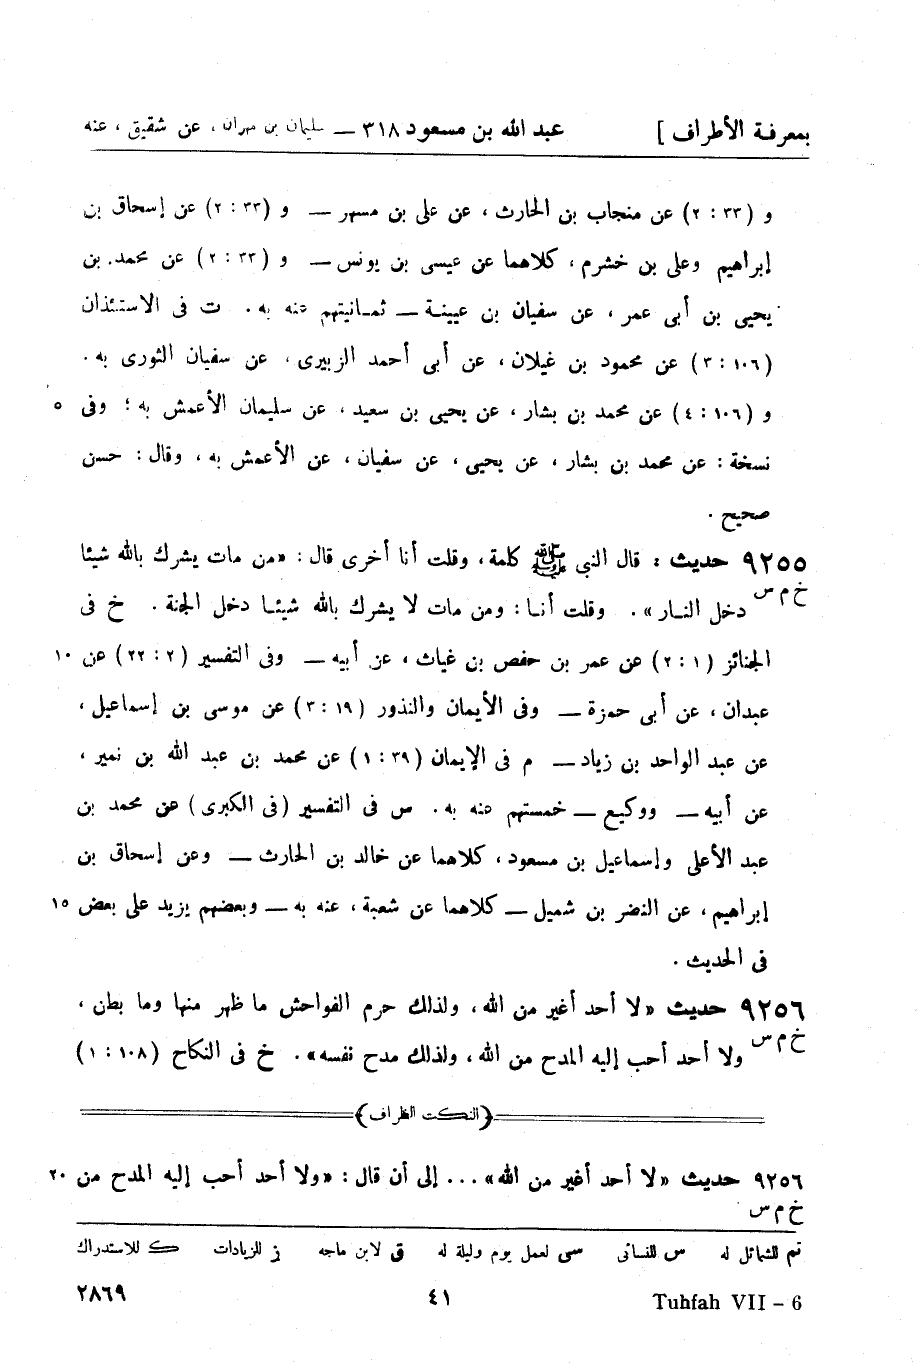 بمعرفة الأطراف ] عبد الله بن مسعود ٣١٨ — سليمان بن مهران ، عن شقيق ، عنه
و (٣٣ : ٢) عن منجاب بن الحارث ، عن على بن مسهر — و (٣٣ : ٢) عن إسحاق بن
إبراهيم وعلى بن خشرم ، كلاهما عن عيسى بن يونس — و (٣٣ : ٢) عن محمد بن
يحيى بن أبى عمر ، عن سفيان بن عيينة — ثمانيتهم عنه به . ت فى الاستئذان
(١٠٦ : ٣) عن محمود بن غيلان ، عن أبى أحمد الزبيرى ، عن سفيان الثورى به .
و (١٠٦ : ٤) عن محمد بن بشار ، عن يحيى بن سعيد ، عن سليمان الأعمش به ؛ وفى ٥
نسخة : عن محمد بن بشار ، عن يحيى ، عن سفيان ، عن الأعمش به ، وقال : حسن
صحيح .
٩٢٥٥ حديث : قال النبى ﷺ كلمة ، وقلت أنا أخرى قال : «من مات يشرك بالله شيئا
خ م س دخل النار» . وقلت أنا : ومن مات لا يشرك بالله شيئا دخل الجنة . خ فى
الجنائز (١ : ٢) عن عمر بن حفص بن غياث ، عن أبيه — وفى التفسير (٢ : ٢٢) عن ١٠
عبدان ، عن أبى حمزة — وفى الأيمان والنذور (١٩ : ٣) عن موسى بن إسماعيل ،
عن عبد الواحد بن زياد — م فى الإيمان (٣٩ : ١) عن محمد بن عبد الله بن نمير ،
عن أبيه — ووكيع — خمستهم عنه به . س فى التفسير (فى الكبرى) عن محمد بن
عبد الأعلى وإسماعيل بن مسعود ، كلاهما عن خالد بن الحارث — وعن إسحاق بن
إبراهيم ، عن النضر بن شميل — كلاهما عن شعبة ، عنه به — وبعضهم يزيد على بعض ١٥
فى الحديث .
٩٢٥٦ حديث «لا أحد أغير من الله ، ولذلك حرم الفواحش ما ظهر منها وما بطن ،
خ م س ولا أحد أحب إليه المدح من الله ، ولذلك مدح نفسه» . خ فى النكاح (١٠٨ : ١)
﴿النكت الظراف﴾
٩٢٥٦ حديث «لا أحد أغير من الله» ... إلى أن قال : «ولا أحد أحب إليه المدح من ٢٠
خ م س
تم للشمائل له س للنسائى سى لعمل يوم وليلة له ق لابن ماجه ز للزيادات ك للاستدراك
Tuhfah VII – 6 ٤١ ٢٨٦٩